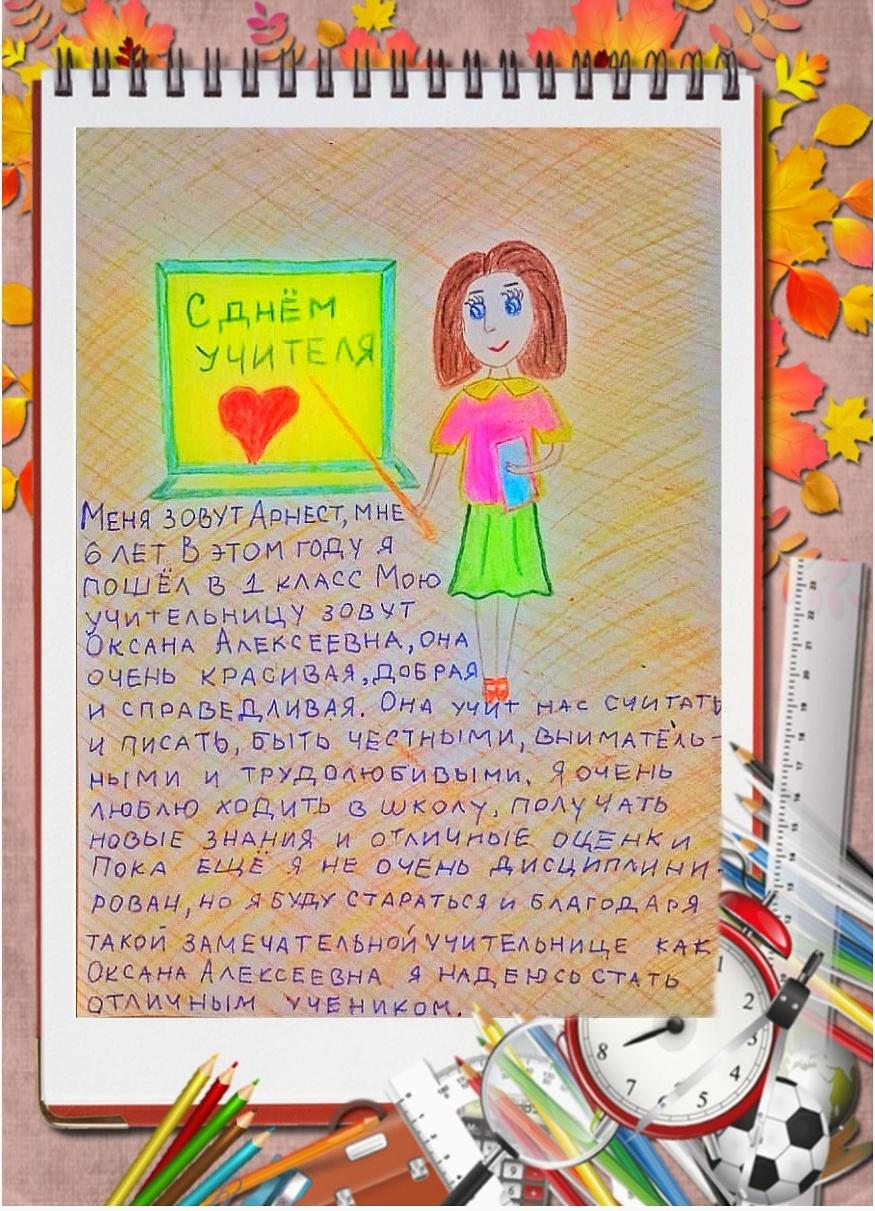 С ДНЁМ
УЧИТЕЛЯ
МЕНЯ ЗОВУТ АРНЕСТ, МНЕ
6 ЛЕТ В ЭТОМ ГОДУ Я
ПОШЁЛ В 1 КЛАСС МОЮ
УЧИТЕЛЬНИЦУ ЗОВУТ
ОКСАНА АЛЕКСЕЕВНА, ОНА
ОЧЕНЬ КРАСИВАЯ, ДОБРАЯ
И СПРАВЕДЛИВАЯ. ОНА УЧИТ НАС СЧИТАТЬ
И ПИСАТЬ, БЫТЬ ЧЕСТНЫМИ, ВНИМАТЕЛЬ-
НЫМИ И ТРУДОЛЮБИВЫМИ. Я ОЧЕНЬ
ЛЮБЛЮ ХОДИТЬ В ШКОЛУ, ПОЛУЧАТЬ
НОВЫЕ ЗНАНИЯ И ОТЛИЧНЫЕ ОЦЕНКИ
ПОКА ЕЩЁ Я НЕ ОЧЕНЬ ДИСЦИПЛИНИ-
РОВАН, НО Я БУДУ СТАРАТЬСЯ И БЛАГОДАРЯ
ТАКОЙ ЗАМЕЧАТЕЛЬНОЙ УЧИТЕЛЬНИЦЕ КАК
ОКСАНА АЛЕКСЕЕВНА Я НАДЕЮСЬ СТАТЬ
ОТЛИЧНЫМ УЧЕНИКОМ.
1
2
3
4
5
7
8